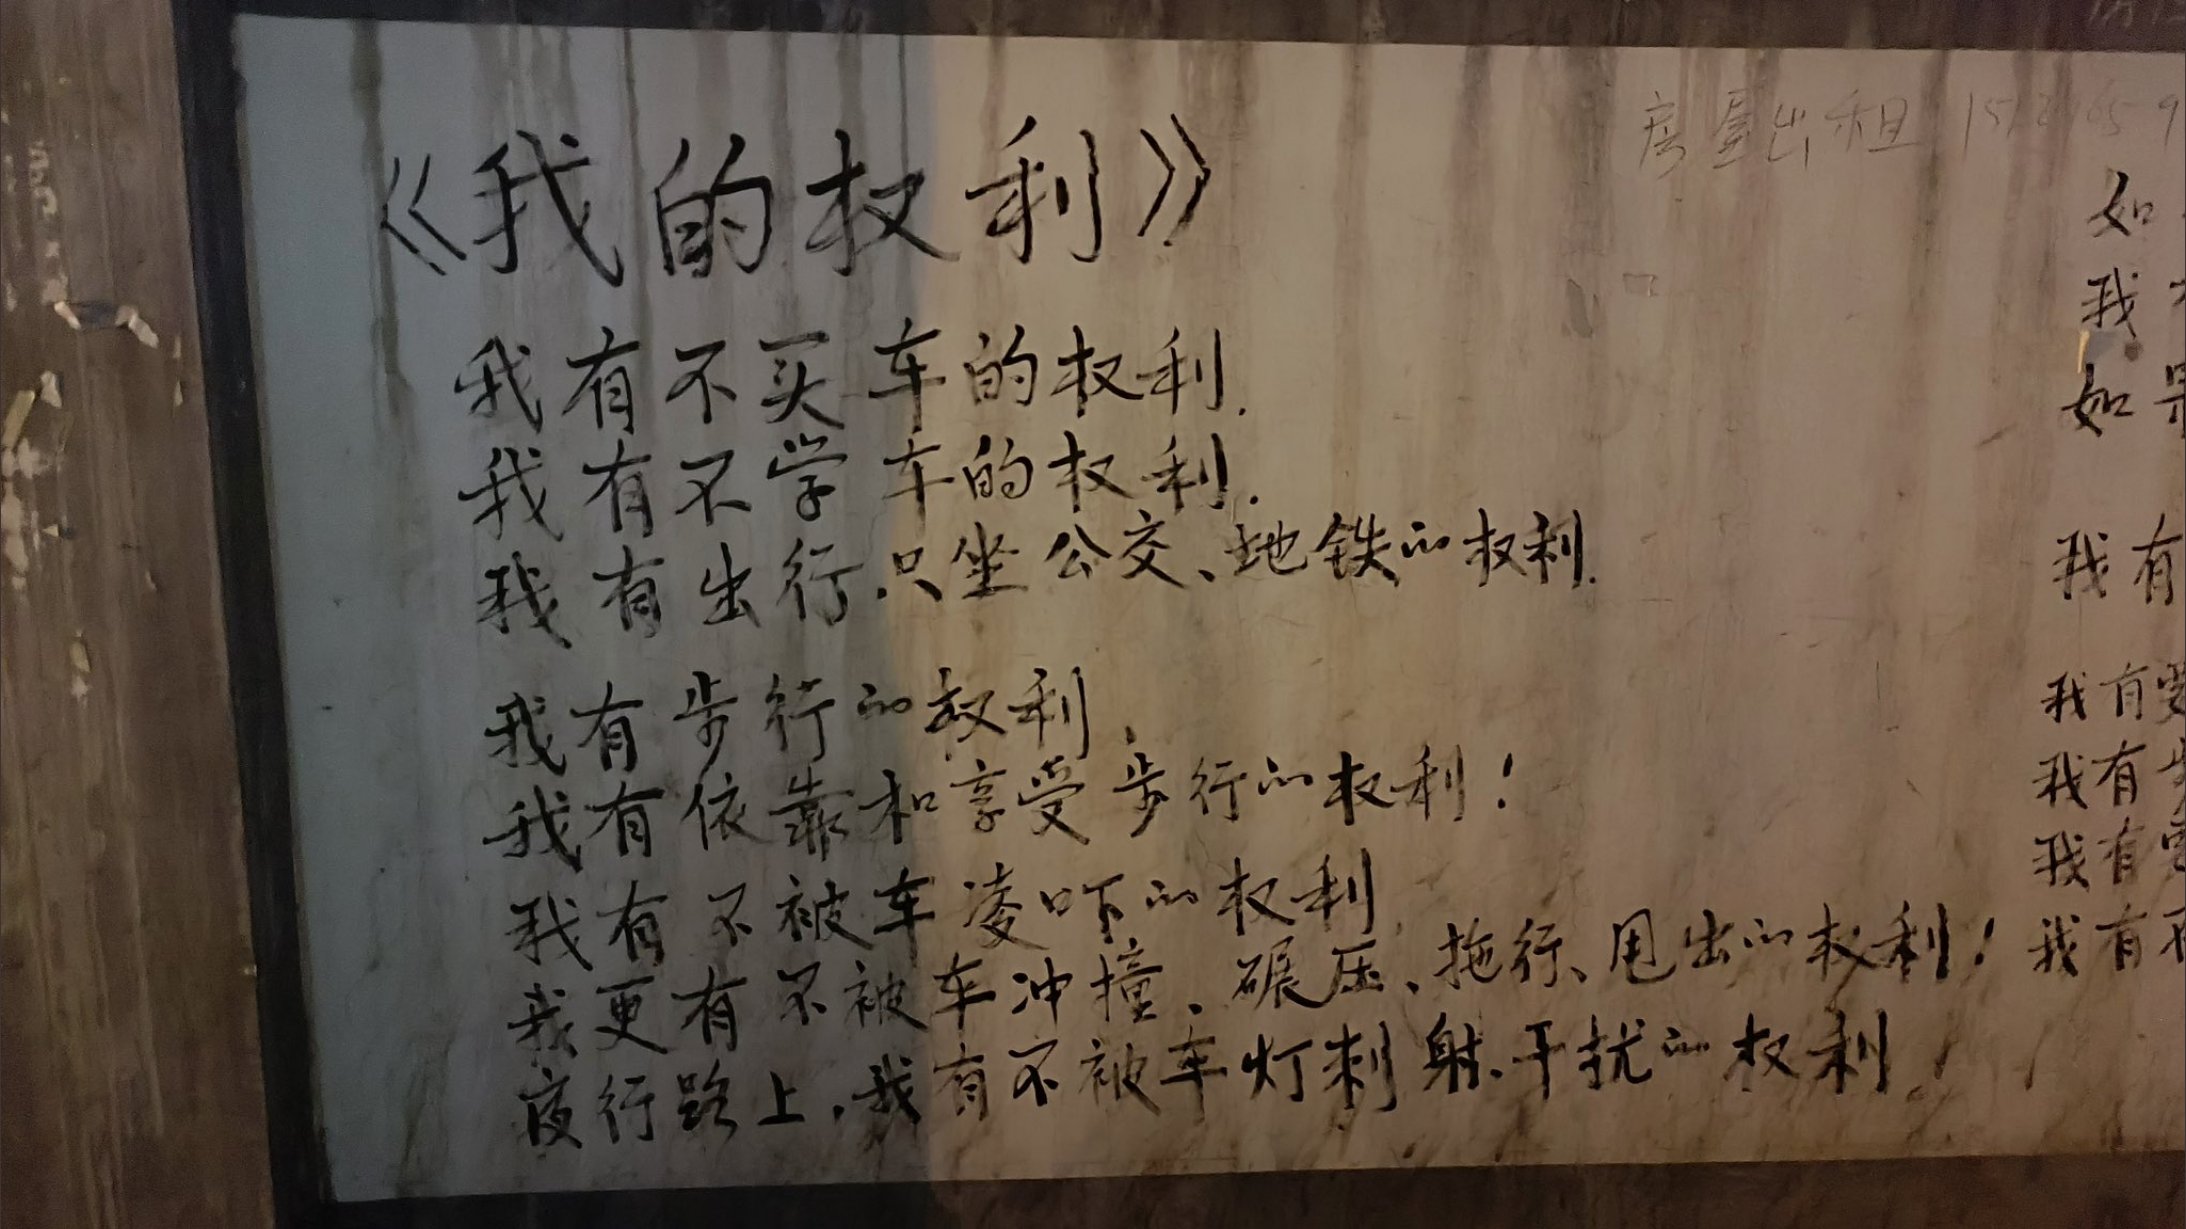 《我的权利》
我有不买车的权利.
我有不学车的权利.
我有出行.只坐公交、地铁的权利.
我有步行的权利,
我有依靠和享受步行的权利!
我有不被车凌吓的权利,
我更有不被车冲撞、碾压、拖行、甩出的权利!
夜行路上,我有不被车灯刺射、干扰的权利!
房屋出租
如
我
如果
我有
我有要
我有
我有更
我有不